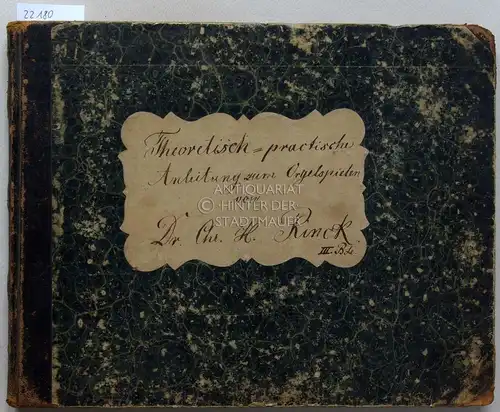 22180
Theoretisch = practische
Anleitung zum Orgelspielen
von
Dr. Chr. H. Rinck
III. Bd.
ANTIQUARIAT
HINTER DER
STADTMAUER